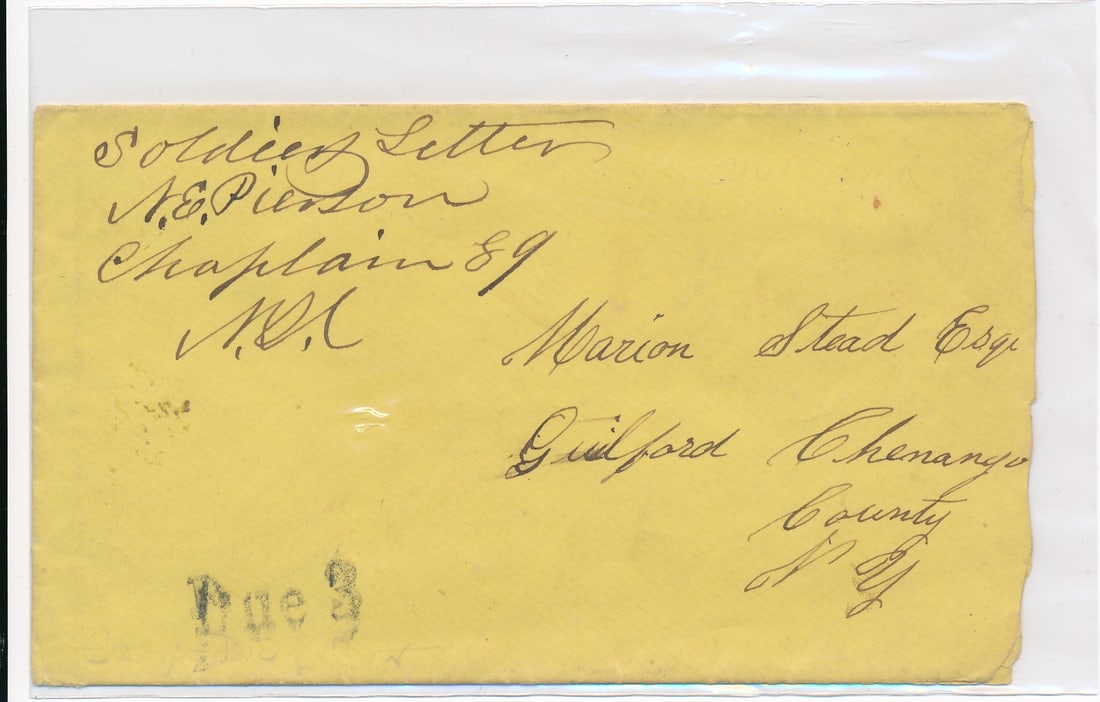 Soldiers Letter
N.E. Pierson
Chaplain 89
N.Y.
Marion Stead Esqr
Guilford Chenango
County
N Y
Due 3